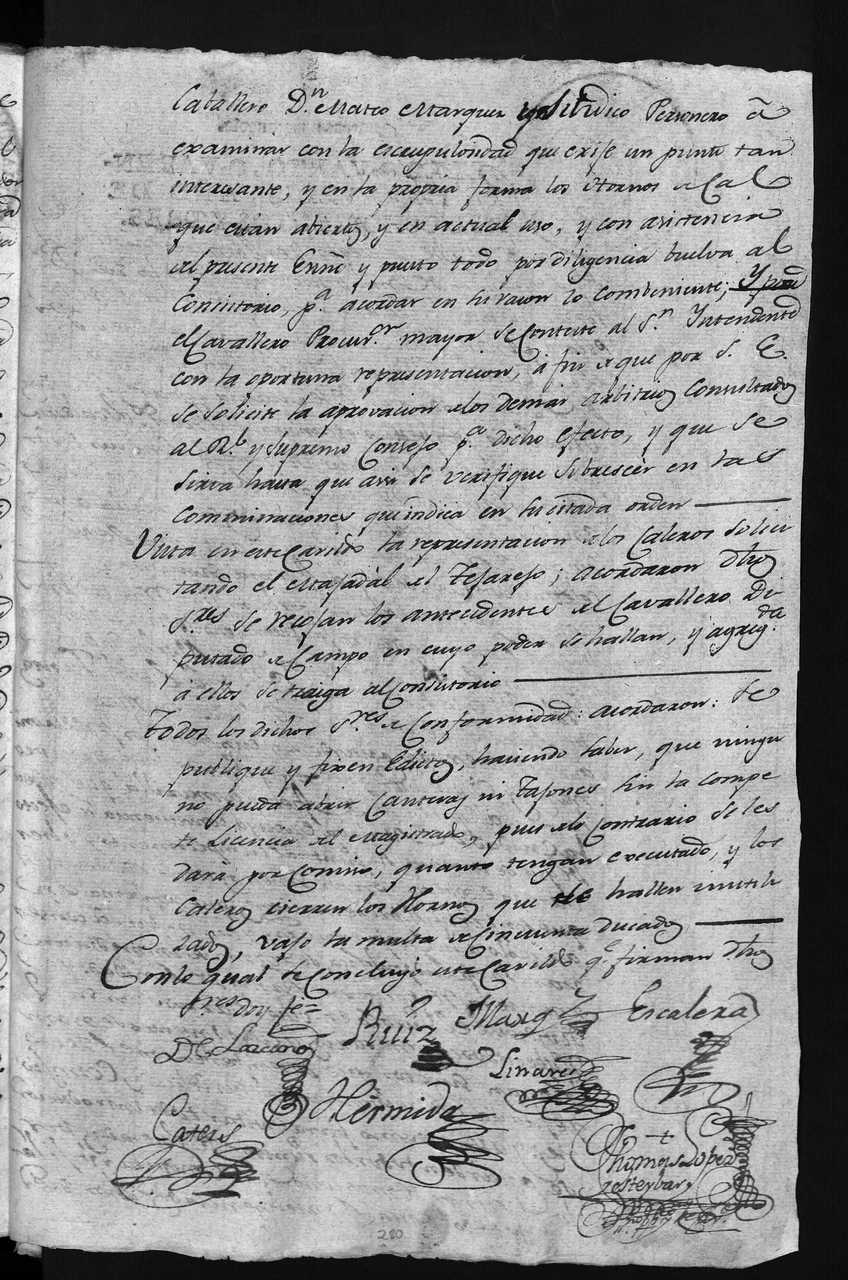 Caballero Dn. Mateo Marquez y el Sindico Personero â
examinar con la escrupulosidad que exije un punto tan
interesante, y en la propria forma los Hornos de Cal
que estan abiertos, y en actual uso, y con asistencia
del presente Essno y puesto todo por diligencia buelva al
Consistorio, pa. acordar en su razon lo combeniente; Y por
el Cavallero Procuror mayor se Conteste al Sn. Intendente
con la oportuna representacion, a fin de que por S. E.
se solicite la aprovacion de los demas Arbitrios Consultados
al Rl. y Supremo Consejo pa. dicho efecto, y que se
sirva hasta que asi se verifique sobreseer en las
Comminaciones, que indica en su citada orden
Vista en este Cavildo la representacion de los Caleros solici
tando el Matajadal del Tesarejo; acordaron dhos
Sres se recojan los antecedentes del Cavallero Di
putado de Campo en cuyo poder se hallan, y agregda
a ellos se traiga al Consistorio
Todos los dichos Sres de Conformidad: acordaron: Se
publique y fixen Edictos, haciendo saber, que ningu
no pueda abrir Canteras ni Tajones sin la compe
te Licencia del Magistrado, pues de lo Contrario se les
dará por Comiso, quanto tengan executado, y los
Caleros cierren los Hornos que se hallen inutili
zados, vajo la multa de Cinquenta Ducados
Con lo qual se Concluyó este Cavildo qe. firman dhos
Sres doy fe=
Ruiz Marqz Escalera
De Lazcano Linares
Hermida
Caters
Thomas Lopez